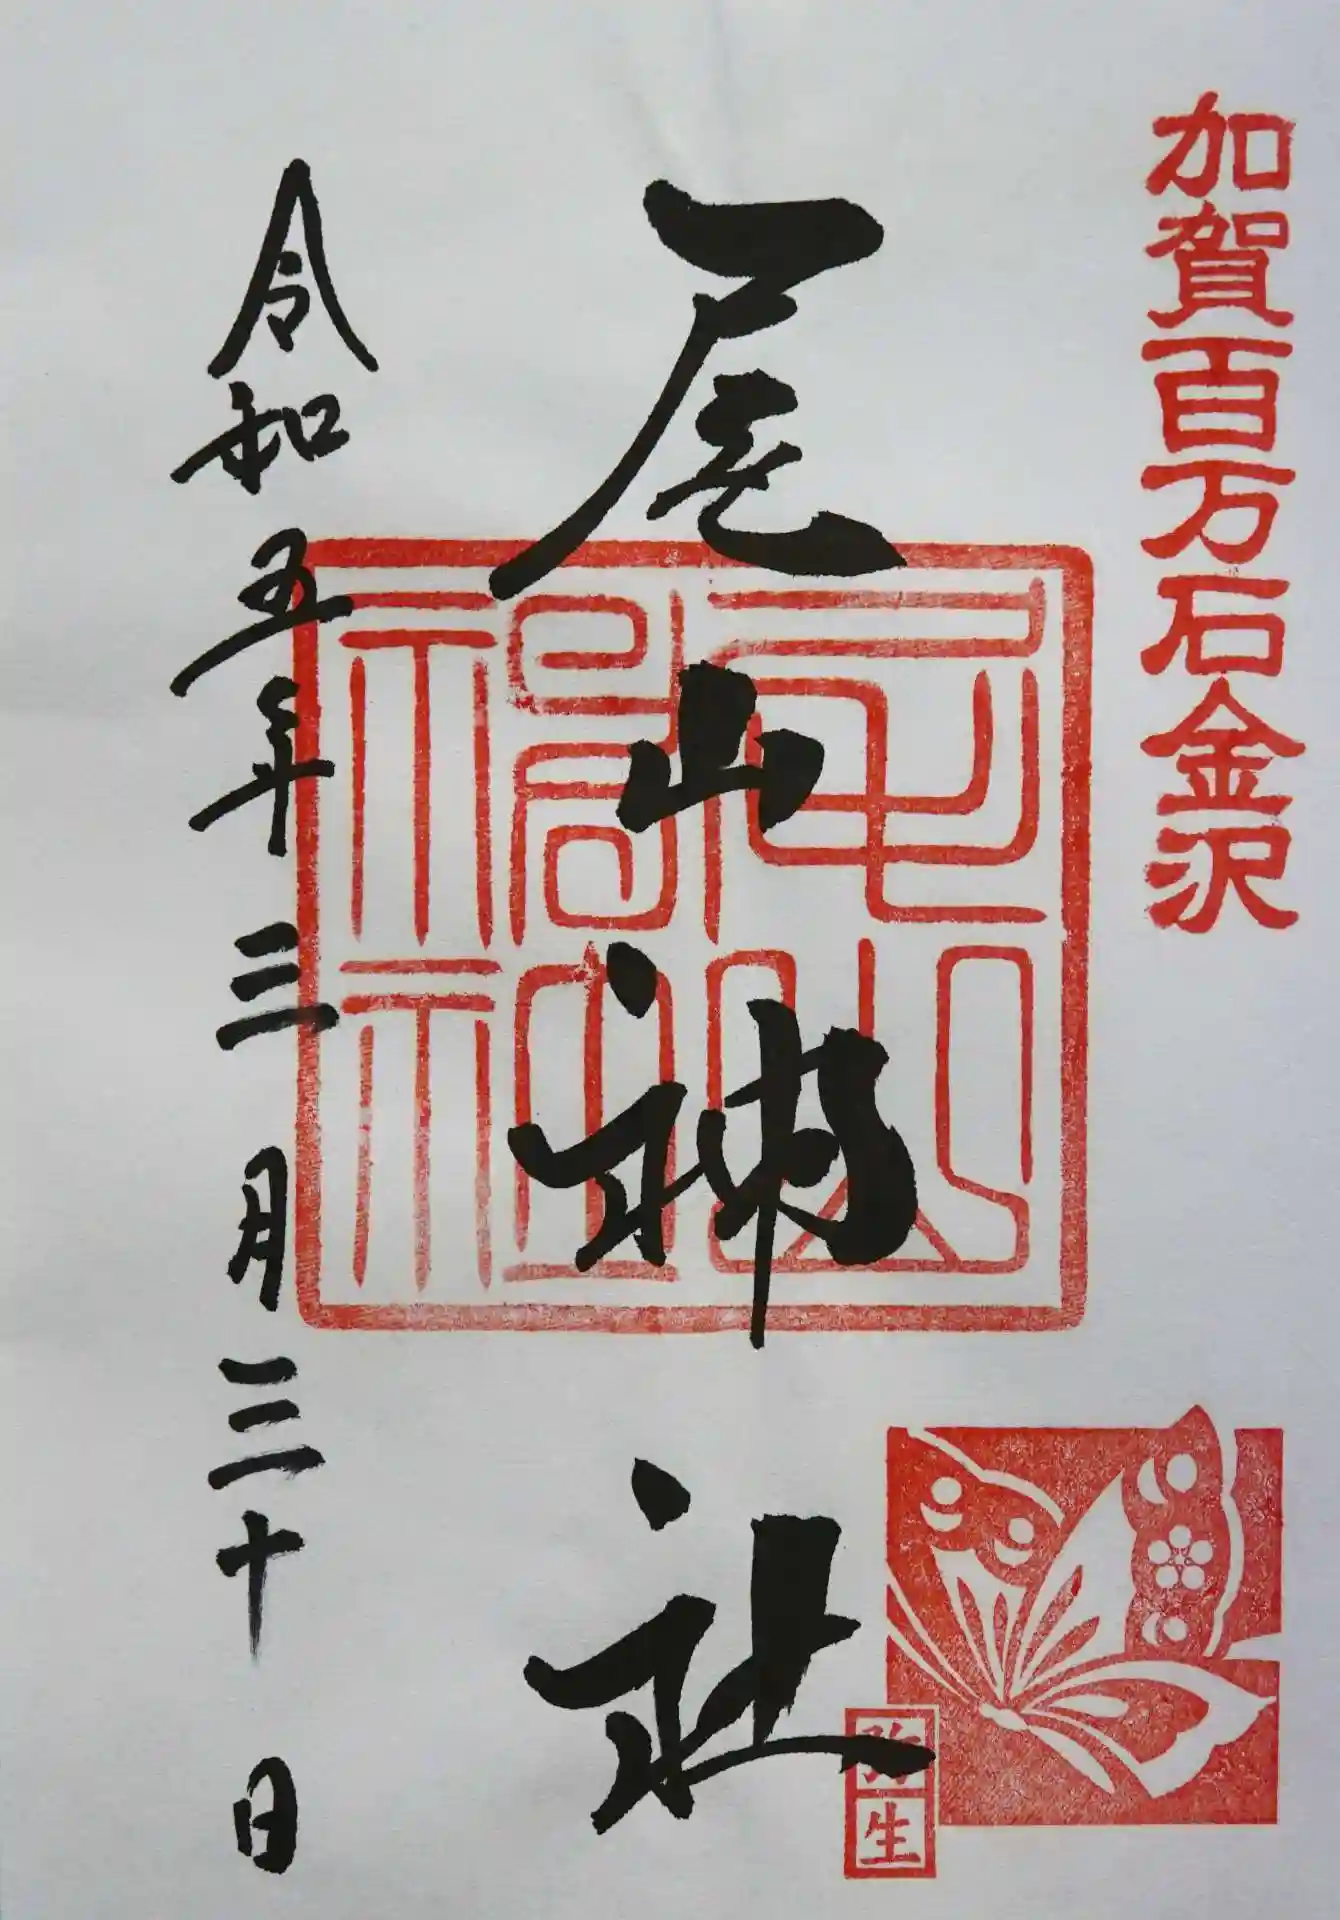 加賀百万石金沢
尾山神社
尾山神社
弥生
令和五年三月三十日